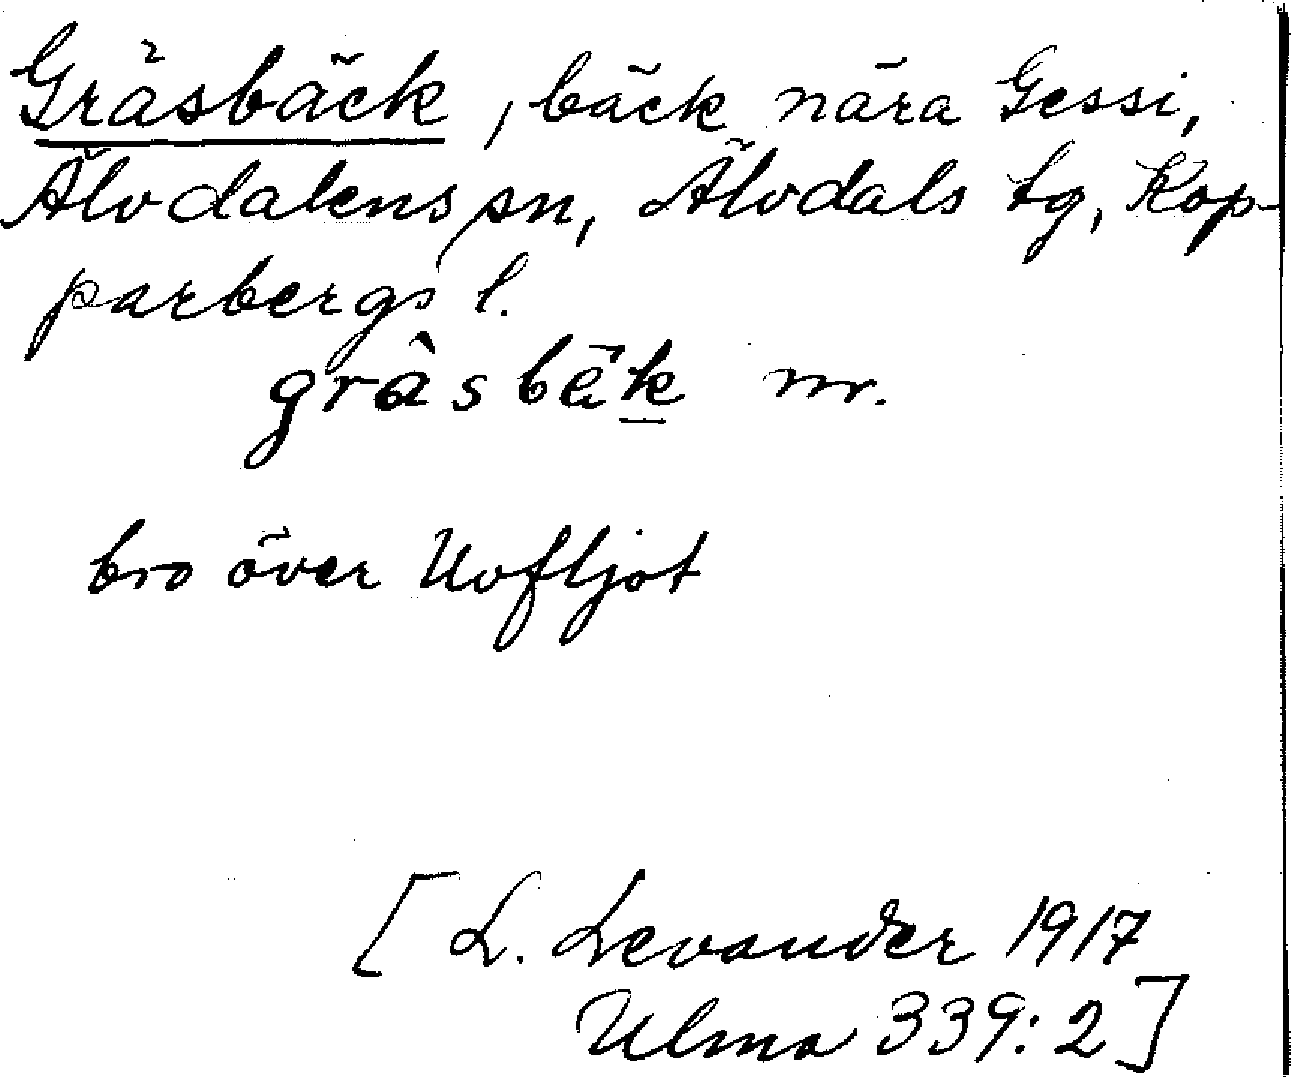 Gräsbäck, bäck nära Gessi,
Älvdalens sn, Älvdals tg, Kop-
parbergs l.
gràsbä́k mr.
bro över Uvfljot
[L. Levander 1917
Ulma 339:2]